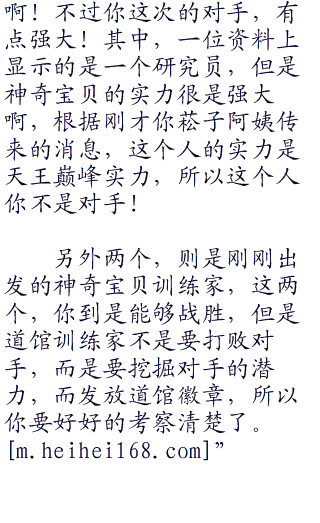 啊！不过你这次的对手，有
点强大！其中，一位资料上
显示的是一个研究员，但是
神奇宝贝的实力很是强大
啊，根据刚才你菘子阿姨传
来的消息，这个人的实力是
天王巅峰实力，所以这个人
你不是对手！
另外两个，则是刚刚出
发的神奇宝贝训练家，这两
个，你到是能够战胜，但是
道馆训练家不是要打败对
手，而是要挖掘对手的潜
力，而发放道馆徽章，所以
你要好好的考察清楚了。
[m.heihei168.com]”